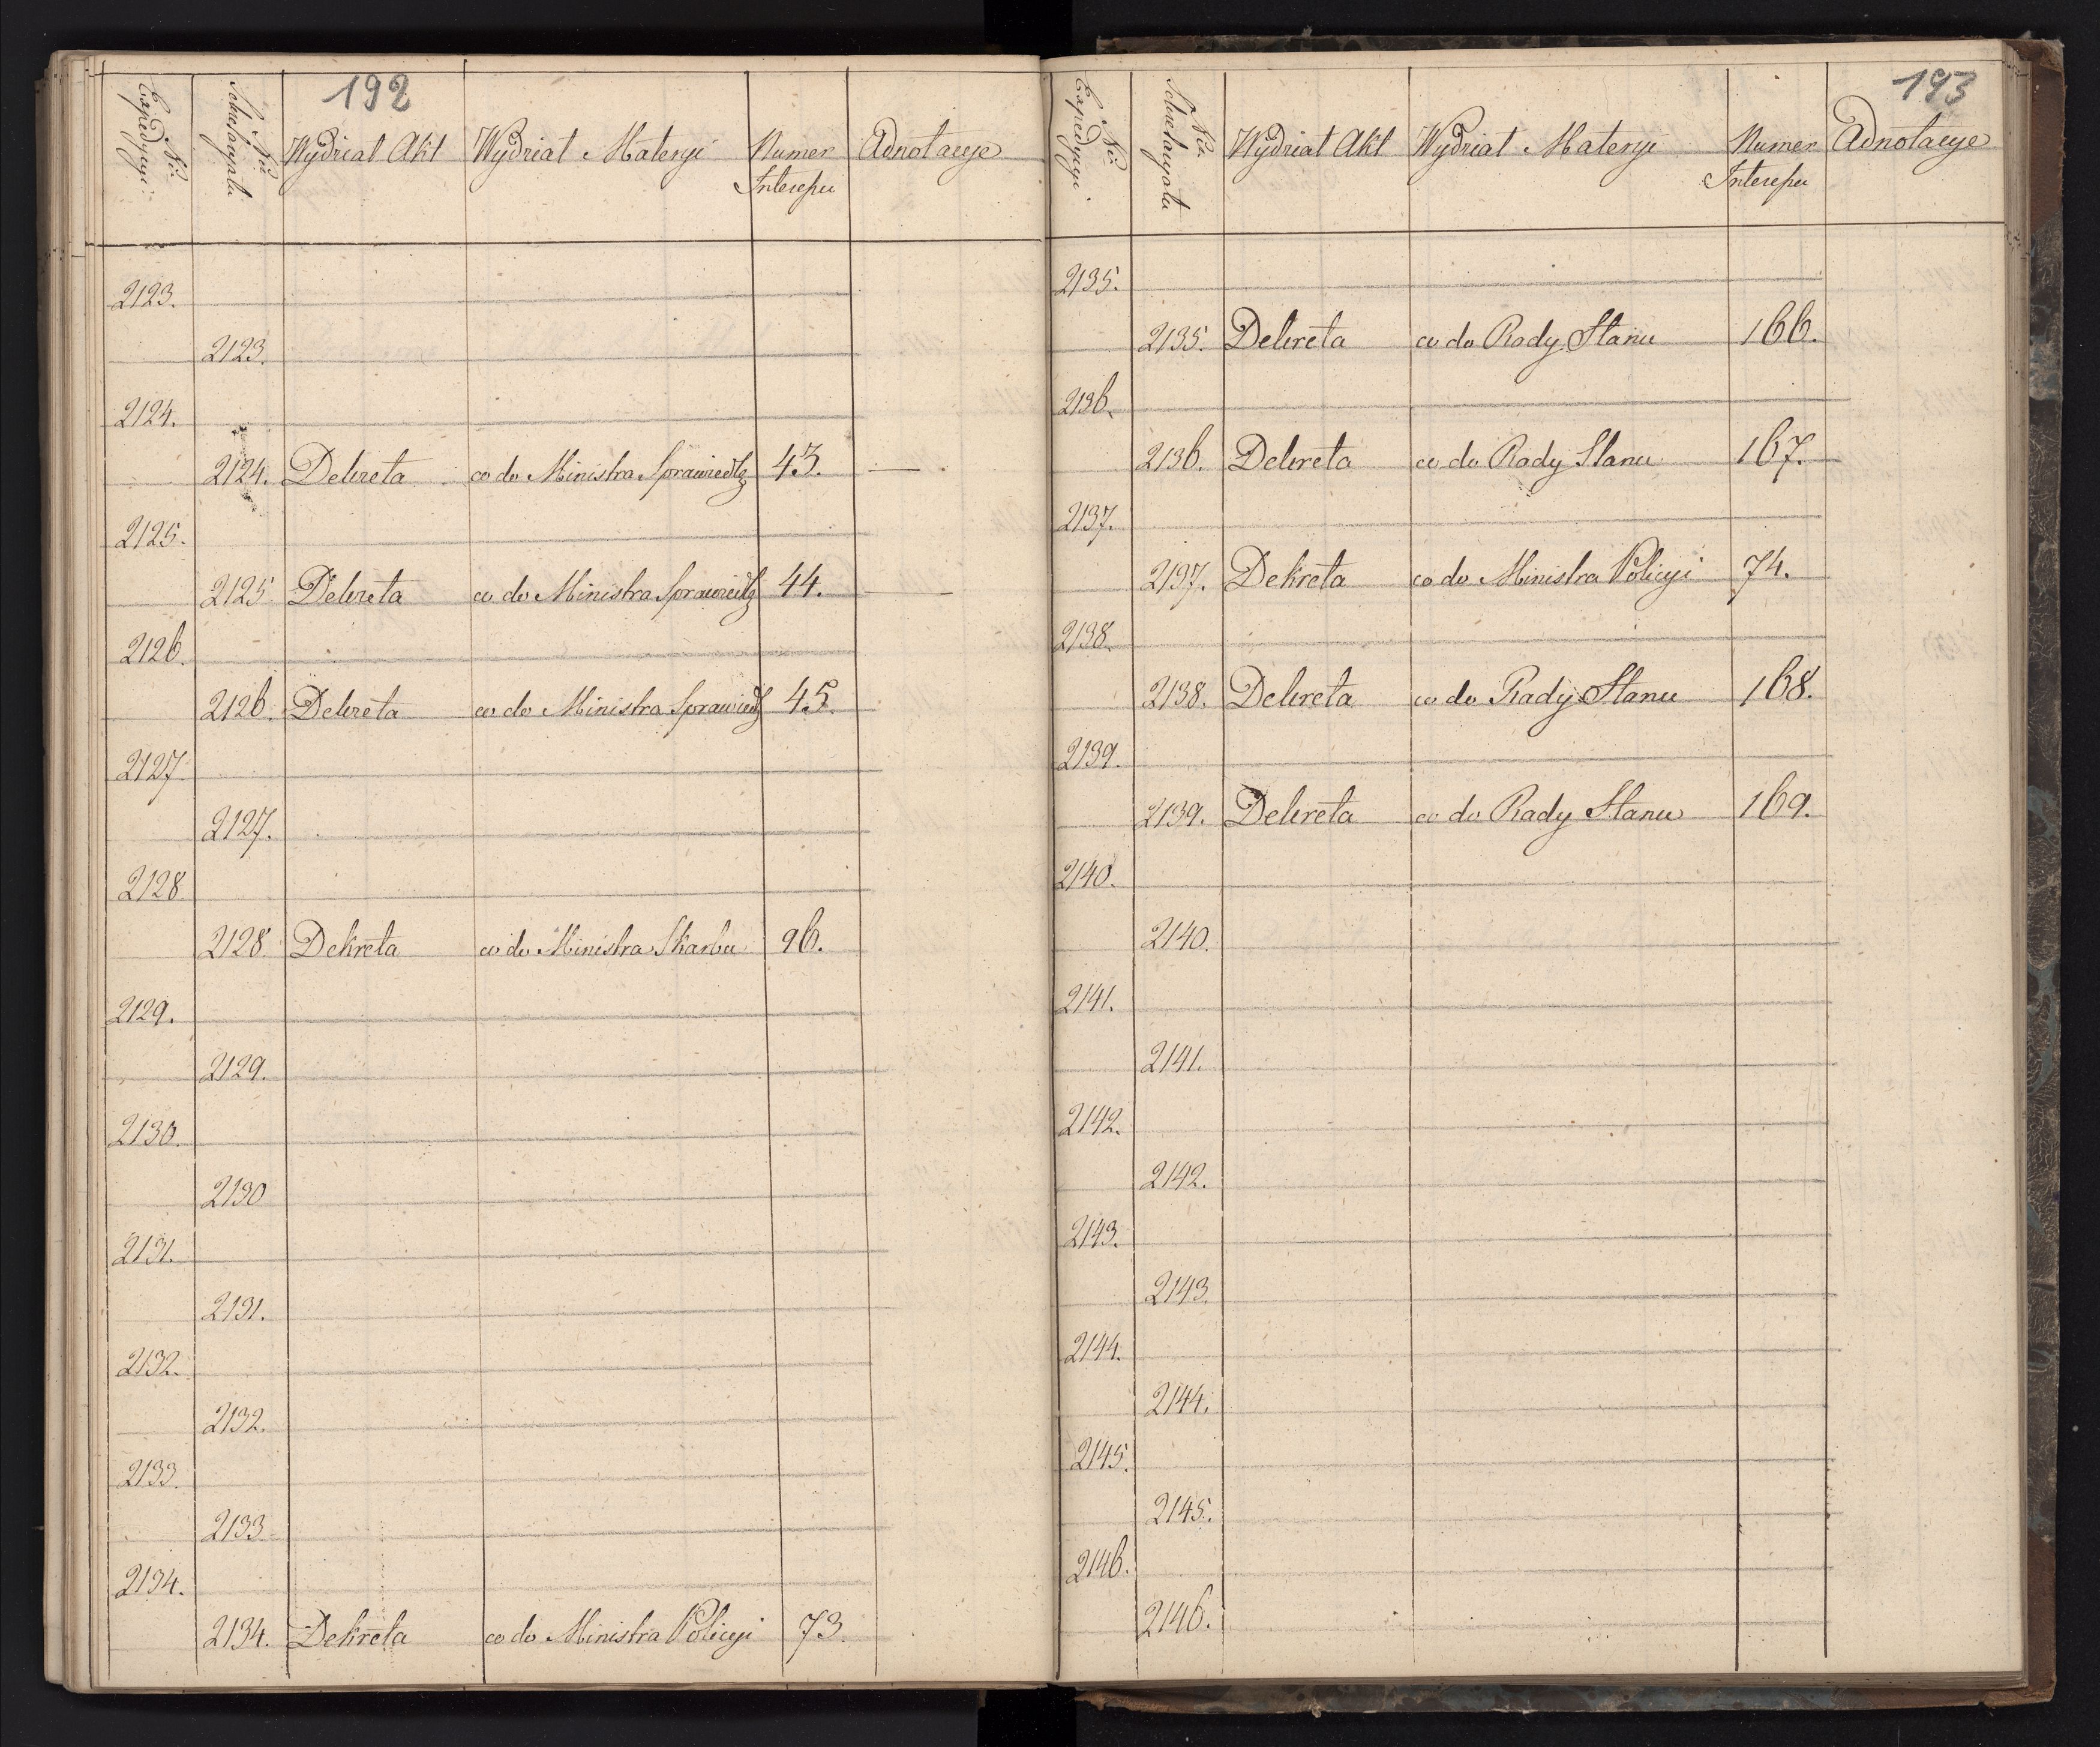 192
Nro Expedycyi
Nro Sekretaryatu
Wydział Akt
Wydział Materyi
Numer Interesu
Adnotacye
2123.
2123.
2124.
2124. Dekreta co do Ministra Sprawiedlg 43. —
2125.
2125 Dekreta co do Ministra Sprawiedlg 44. —
2126.
2126. Dekreta co do Ministra Sprawiedlg 45.
2127.
2127.
2128
2128. Dekreta co do Ministra Skarbu 96.
2129.
2129.
2130.
2130
2131.
2131.
2132.
2132.
2133.
2133
2134.
2134. Dekreta co do Ministra Policyi 73.
193
Nro Expedycyi.
Nro Sekretaryatu
Wydział Akt
Wydział Materyi
Numer Interesu
Adnotacye
2135.
2135. Dekreta co do Rady Stanu 166.
2136.
2136. Dekreta co do Rady Stanu 167.
2137.
2137. Dekreta co do Ministra Policyi 74.
2138.
2138. Dekreta co do Rady Stanu 168.
2139.
2139. Dekreta co do Rady Stanu 169.
2140.
2140.
2141.
2141.
2142.
2142.
2143.
2143.
2144.
2144.
2145.
2145.
2146.
2146.